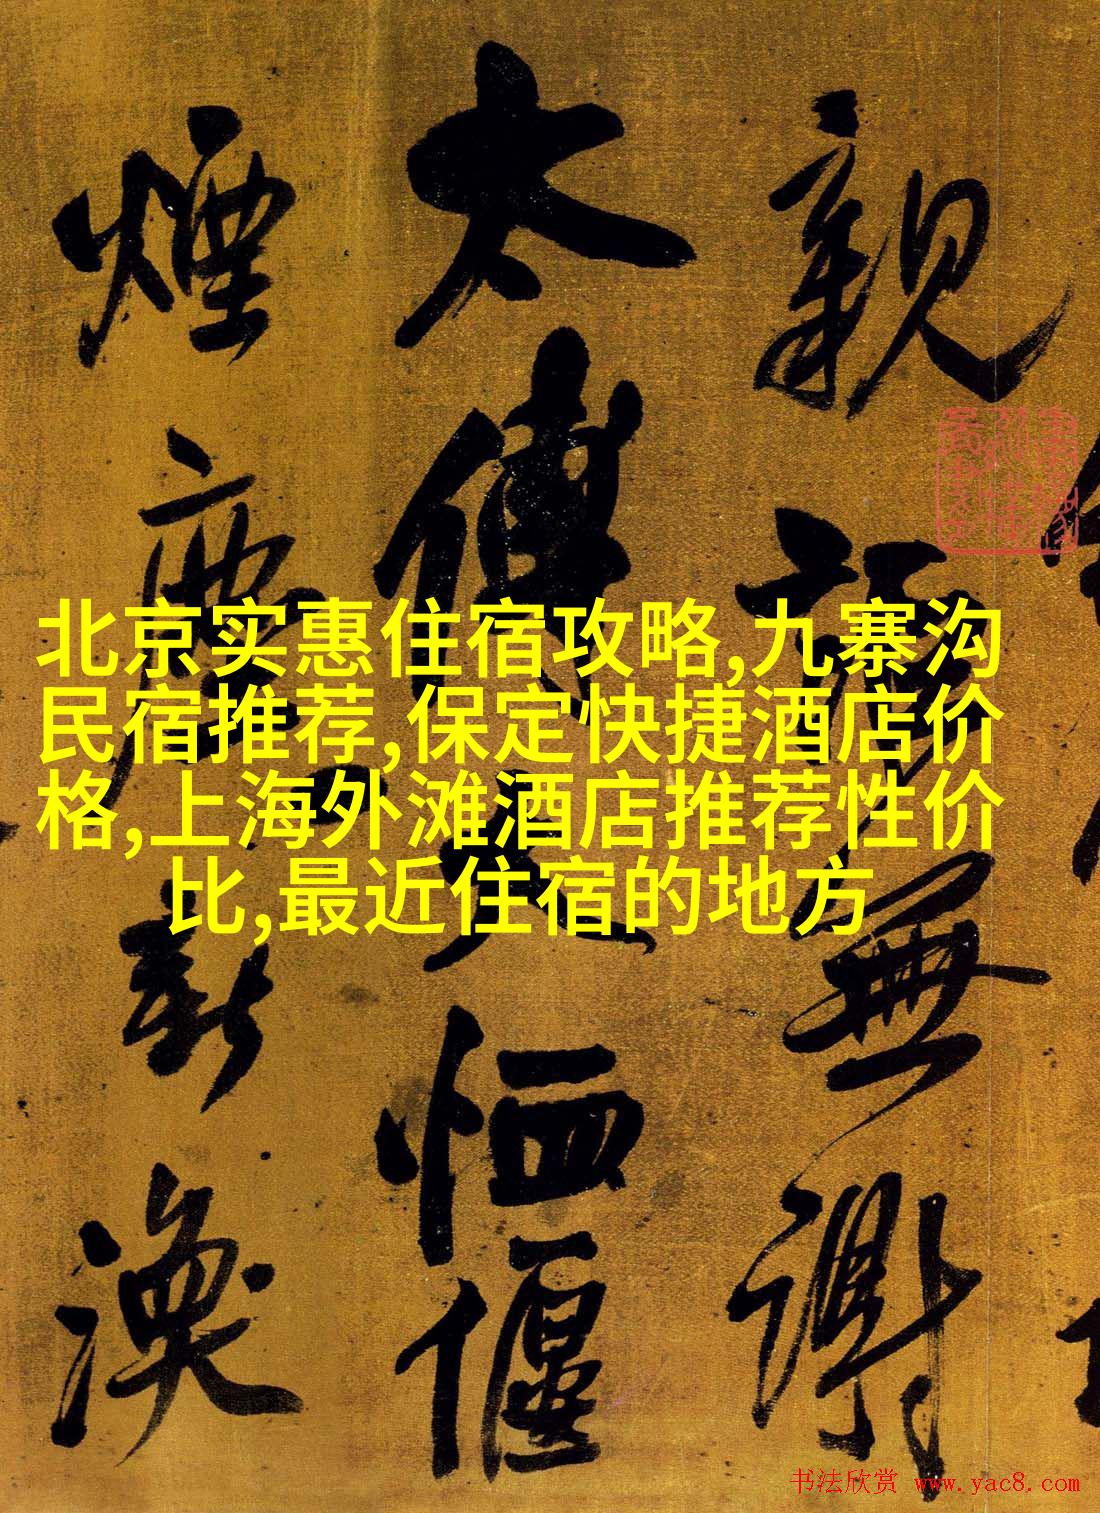 親譜無謝
太傅又恤偃
煙塵新渙
北京实惠住宿攻略,九寨沟
民宿推荐,保定快捷酒店价
格,上海外滩酒店推荐性价
比,最近住宿的地方
书法欣赏 www.yac8.com